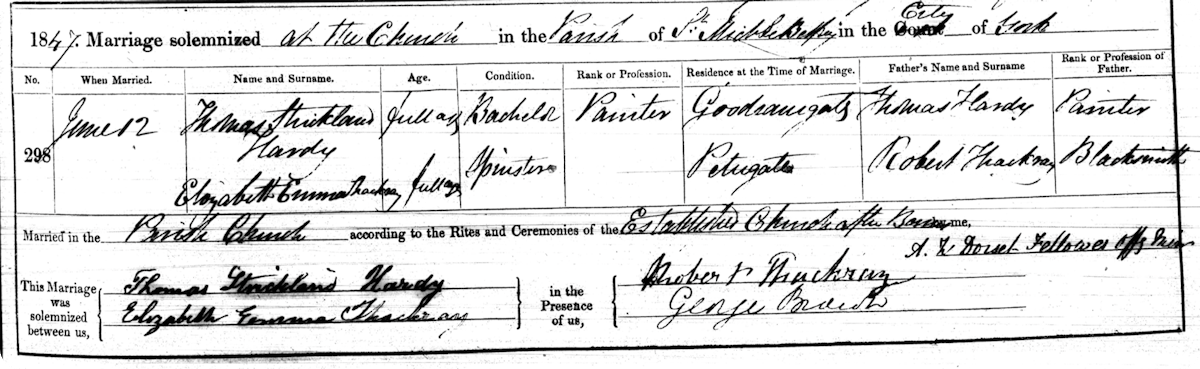 1847. Marriage solemnized at the Church in the Parish of St. Michle Belfry in the City of York
No. When Married. Name and Surname. Age. Condition. Rank or Profession. Residence at the Time of Marriage. Father's Name and Surname Rank or Profession of Father.
298 June 12 Thomas Strickland Hardy full age Bachelor Painter Goodramgate Thomas Hardy Painter
Elizabeth Emma Thackray full age Spinster Petergate Robert Thackray Blacksmith
Married in the Parish Church according to the Rites and Ceremonies of the Established Church after Banns me,
A. Dorset Fellowes Offg Minr
This Marriage was solemnized between us, Thomas Strickland Hardy in the Presence of us, Robert Thackray
Elizabeth Emma Thackray George